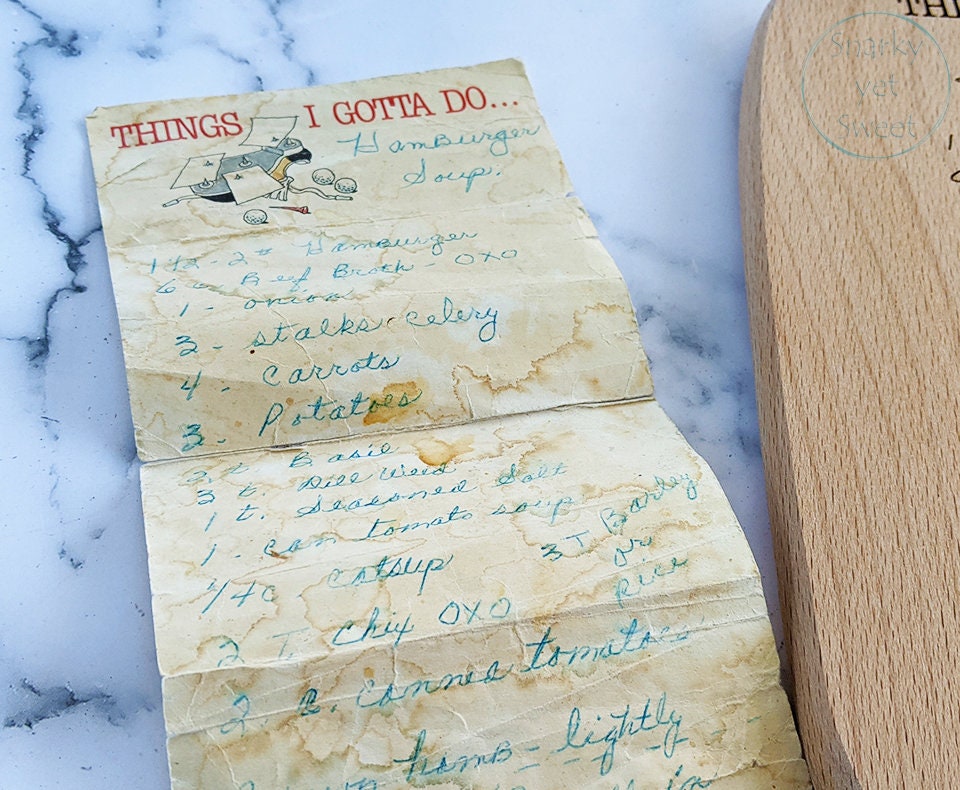 THINGS I GOTTA DO...
HamBurger
Soup.
1 1/2 - 2 # Hamburger
6 c Beef Broth - OXO
1 - onion
3 - stalks celery
4 - Carrots
3 - Potatoes
2 t Basil
3 t. Dill Weed
1 t. Seasoned Salt
1 - can tomato soup
1/4 c Catsup
3 T Barley
or
rice
2 T. Chix OXO
2 c. canned tomatoes
hamb - lightly
THI
Snarky
yet
Sweet